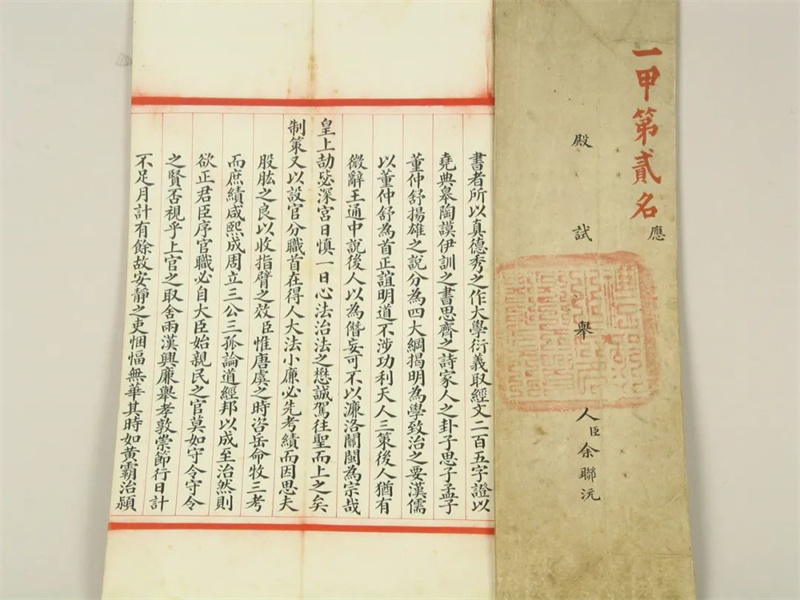 一甲第貳名
應
殿試舉人臣余聯沅
書者所以真德秀之作大學衍義取經文二百五字證以
堯典皋陶謨伊訓之書思齊之詩家人之卦子思子孟子
董仲舒揚雄之說分為四大綱揭明為學致治之要漢儒
以董仲舒為首正誼明道不涉功利天人三策後人猶有
微辭王通中說後人以為僭妄可不以濂洛關閩為宗哉
皇上劼毖深宮日慎一日心法治法之懋誠駕往聖而上之矣
制策又以設官分職首在得人大法小廉必先考績而因思夫
股肱之良以收指臂之效臣惟唐虞之時咨岳命牧三考
而庶績咸熙成周立三公三孤論道經邦以成至治然則
欲正君臣序官職必自大臣始親民之官莫如守令守令
之賢否視乎上官之取舍兩漢興廉舉孝敦崇節行日計
不足月計有餘故安靜之吏悃愊無華其時如黃霸治潁